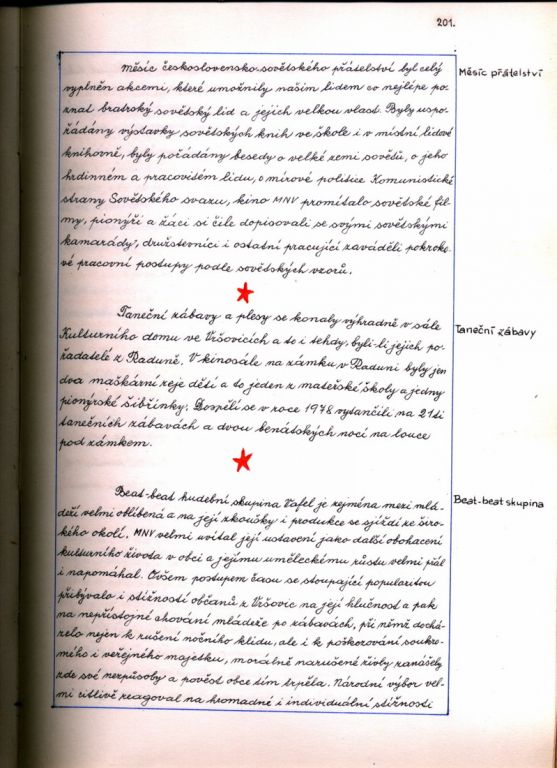 201.
Měsíc přátelství
Měsíc československo-sovětského přátelství byl celý
vyplněn akcemi, které umožnily našim lidem co nejlépe po-
znat bratrský sovětský lid a jejich velkou vlast. Byly uspo-
řádány výstavky sovětských knih ve škole i v místní lidové
knihovně, byly pořádány besedy o velké zemi sovětů, o jeho
hrdinném a pracovitém lidu, o mírové politice Komunistické
strany Sovětského svazu, kino MNV promítalo sovětské fil-
my, pionýři a žáci si čile dopisovali se svými sovětskými
kamarády, družstevníci i ostatní pracující zaváděli pokroko-
vé pracovní postupy podle sovětských vzorů.
Taneční zábavy
Taneční zábavy a plesy se konaly výhradně v sále
Kulturního domu ve Vršovicích a to i tehdy, byli-li jejich po-
řadatelé z Raduně. V kinosále na zámku v Raduni byly jen
dva maškarní reje dětí a to jeden z mateřské školy a jedny
pionýrské šibřinky. Dospělí se v roce 1978 vytančili na 21 ti
tanečních zábavách a dvou benátských nocí na louce
pod zámkem.
Beat-beat skupina
Beat-beat hudební skupina Vafel je zejména mezi mlá-
deží velmi oblíbená a na její zkoušky i produkce se sjíždí ze širo-
kého okolí. MNV velmi uvítal její ustavení jako další obohacení
kulturního života v obci a jejímu uměleckému růstu velmi přál
i napomáhal. Ovšem postupem času se stoupající popularitou
přibývalo i stížností občanů z Vršovic na její hlučnost a pak
na nepřístojné chování mládeže po zábavách, při němž dochá-
zelo nejen k rušení nočního klidu, ale i k poškozování soukro-
mého i veřejného majetku, morálně narušené živly zanášely
zde své nezpůsoby a pověst obce tím trpěla. Národní výbor vel-
mi citlivě reagoval na hromadné i individuální stížnosti